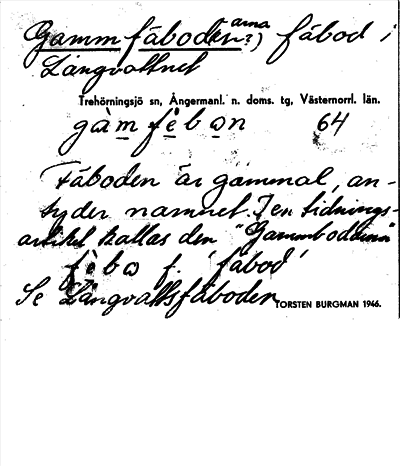 Gammfäboden (arna?) fäbod i
Långvattnet
Trehörningsjö sn, Ångermanl. n. doms. tg, Västernorrl. län.
gàm fèbɷn 64
Fäboden är gammal, an-
tyder namnet. I en tidnings-
artikel kallas den "Gammbodarna"
fèbɷ f. 'fäbod'
Se Långvattsfäboden
TORSTEN BURGMAN 1946.